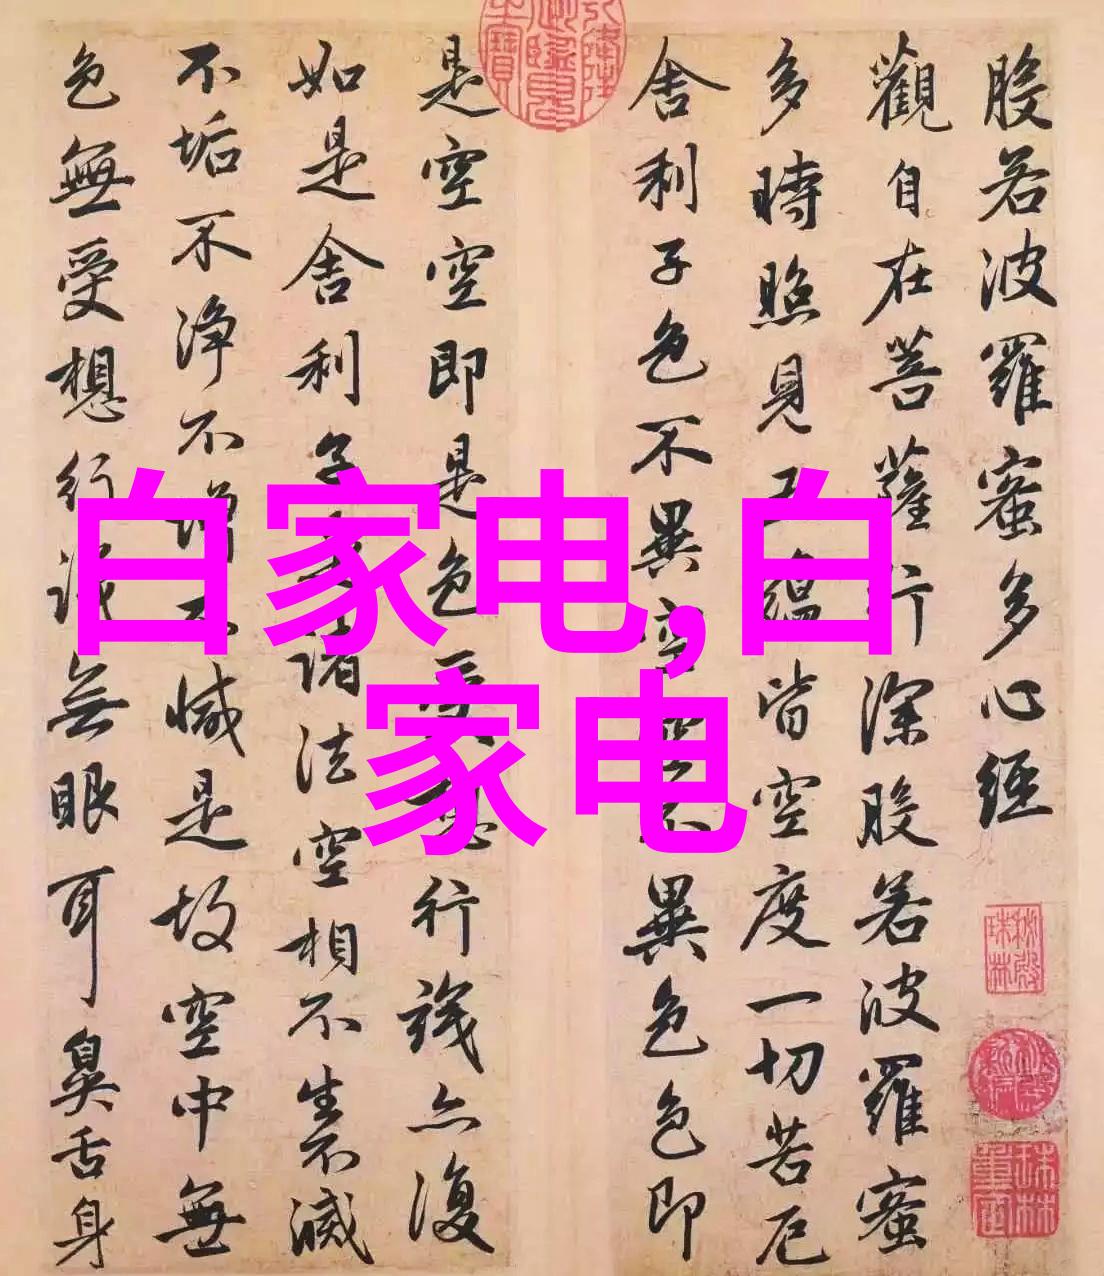 般若波羅蜜多心經
觀自在菩薩行深般若波羅蜜
多時照見五蘊皆空度一切苦厄
舍利子色不異空空不異色色即
是空空即是色受想行識亦復
如是舍利子是諸法空相不生不滅
不垢不淨不增不減是故空中無
色無受想行識無眼耳鼻舌身
白家电,白
家电